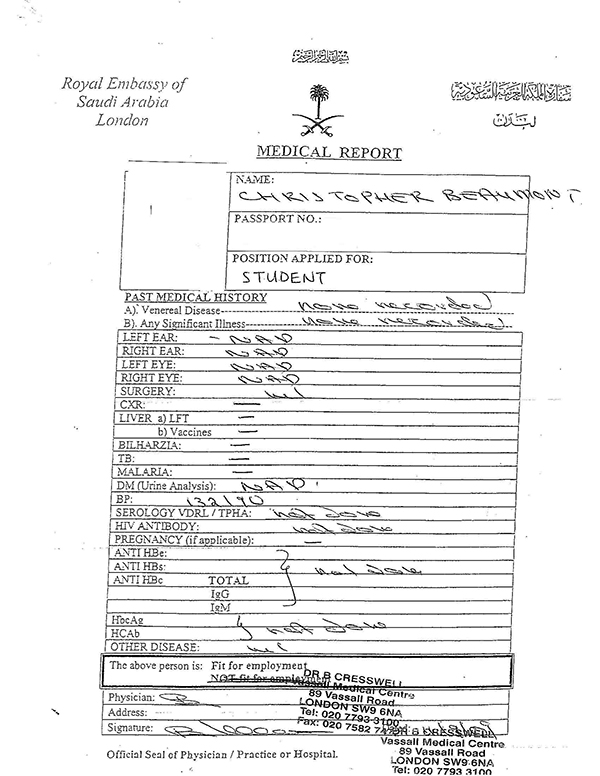 Royal Embassy of
Saudi Arabia
London
سفارة المملكة العربية السعودية
لندن
MEDICAL REPORT
NAME:
CHRISTOPHER BEAUMONT
PASSPORT NO.:
POSITION APPLIED FOR:
STUDENT
PAST MEDICAL HISTORY
A). Venereal Disease--- none recorded
B). Any Significant Illness--- none recorded
LEFT EAR: - NAD
RIGHT EAR: NAD
LEFT EYE: NAD
RIGHT EYE: NAD
SURGERY:
CXR: —
LIVER a) LFT —
b) Vaccines —
BILHARZIA: —
TB: —
MALARIA: —
DM (Urine Analysis): NAD
BP: 132/90
SEROLOGY VDRL / TPHA: not done
HIV ANTIBODY: not done
PREGNANCY (if applicable): —
ANTI HBe:
ANTI HBs: not done
ANTI HBc TOTAL
IgG
IgM
HbcAg
HCAb not done
OTHER DISEASE:
The above person is: Fit for employment
NOT fit for employment
DR B CRESSWELL
Vassall Medical Centre
89 Vassall Road
LONDON SW9 6NA
Tel: 020 7793 3100
Fax: 020 7582
Physician:
Address:
Signature:
CRESSWELL
Vassall Medical Centre
89 Vassall Road
LONDON SW9 6NA
Tel: 020 7793 3100
Official Seal of Physician / Practice or Hospital.